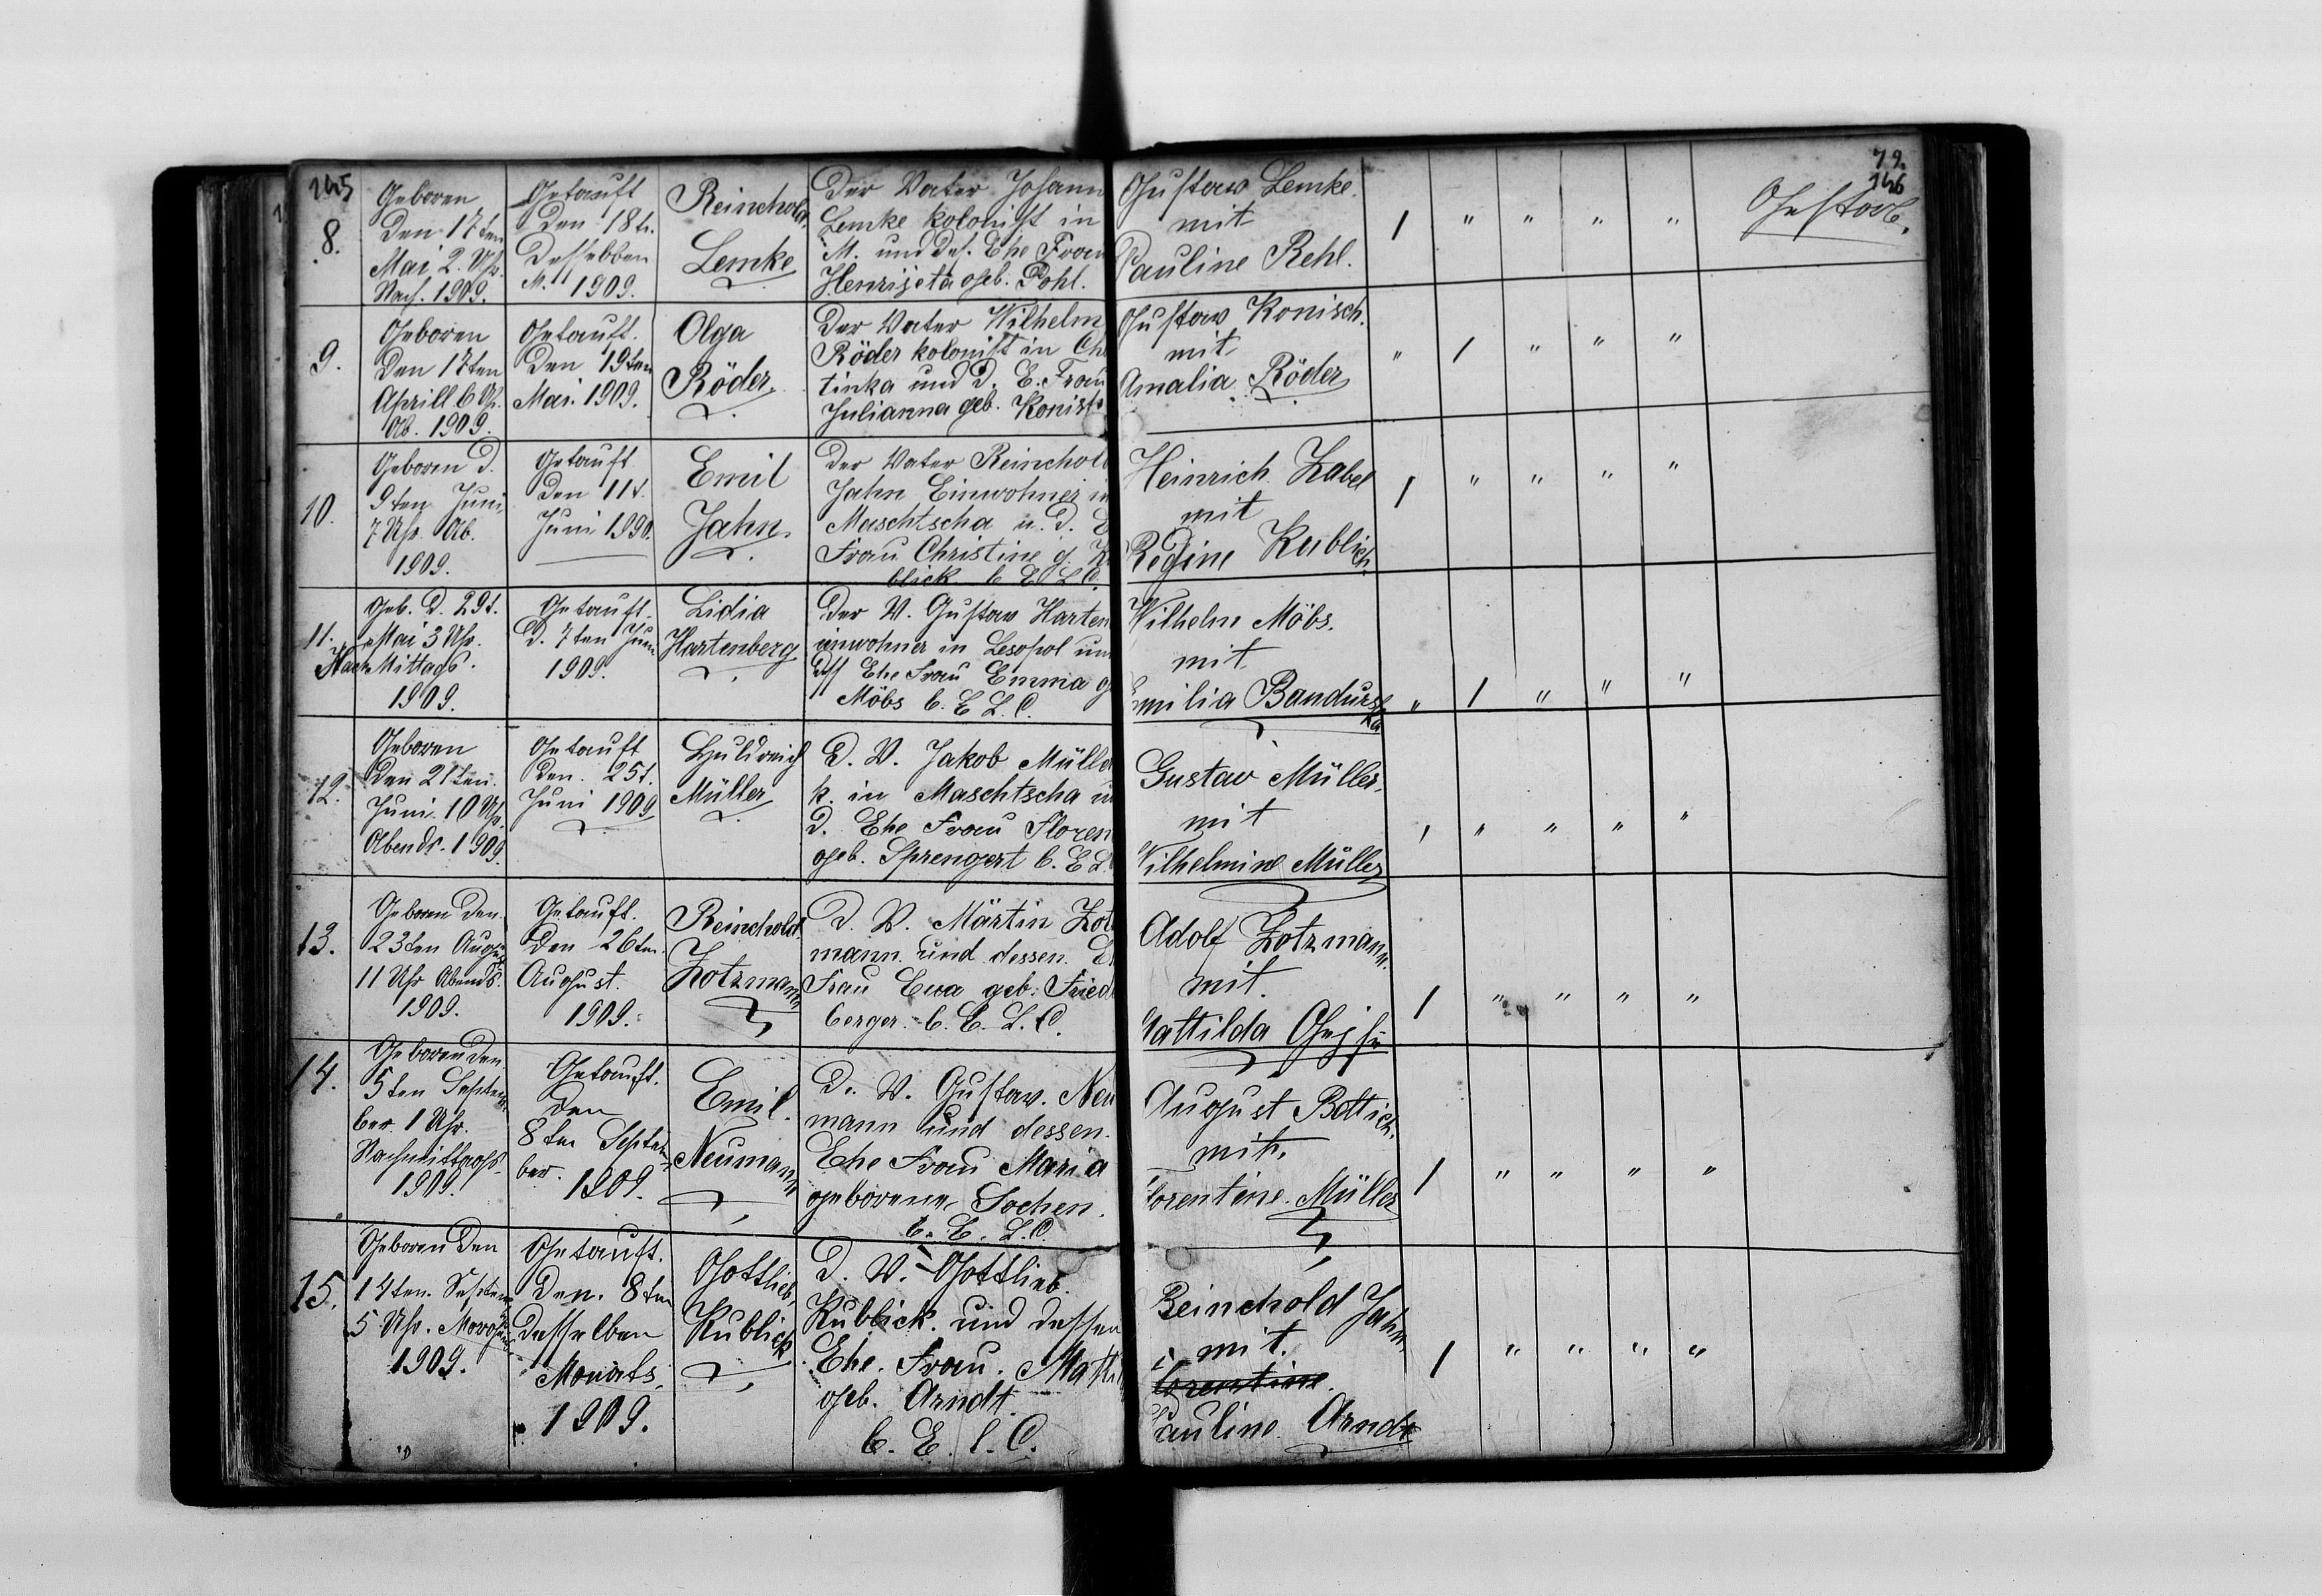 145
8.
Geboren
den 17ten
Mai 2. Uhr.
Nach. 1909.
Getauft
den 18t.
desselben
M. 1909.
Reinchold
Lemke
Der Vater Johann
Lemke kolonist in
M. und des. Ehe Frau
Henrijeta geb. Pohl.
Gustaw Lemke.
mit
Pauline Rehl.
1 " " " "
79.
146
Gestorb.
9.
Geboren
den 17ten
Aprill 6 Uh.
Ab. 1909.
Getauft.
den 19ten
Mai. 1909.
Olga
Röder.
Der Vater Wilhelm
Röder kolonist in Ch
tinka und d. E. Frau
Julianna geb. Konisch
Gustaw Konisch.
mit
Amalia Röder
" 1 " " "
10.
Geboren d.
9ten Juni,
7 Uhr. Ab.
1909.
Getauft
den 11t.
Juni 1990.
Emil
Jahn.
Der Vater Reinchold
Jahn Einwohner in
Maschtscha u. d. E
Frau Christine g. K
blick b. E L C.
Heinrich Zabel
mit
Regine Kublick.
1 " " " "
11.
Geb. d. 29t.
Mai 3 Uhr.
Nach Mittags.
1909.
Getauft.
d. 7ten Juni
1909.
Lidia
Hartenberg
Der V. Gustaw Harten
einwohner in Lesopol un
Ehe Frau Emma g
Möbs b. E L. C.
Wilhelm Möbs.
mit
Emilia Bandurs
ka
" 1 " " "
12.
Geboren
den 21ten.
Juni 10 Uhr.
Abends. 1909
Getauft
den. 25t.
Juni 1909
Huldreich
Müller
D. V. Jakob Mülle
k. in Maschtscha u
d. Ehe Frau Floren
geb. Sprengert b. E L.
Gustav Müller,
mit
Wilhelmine Müller
1 " " " "
13.
Geboren den
23ten August
11 Uhr Abends.
1909.
Getauft.
den 26ten.
August.
1909.
Reinchold
Zotzmann
D. V. Märtin Zot
mann und dessen. E
Frau Ewa geb. Fried
berger. b. E. L. C.
Adolf Zotzmann.
mit.
Mattilda
1 " " " "
14.
Geboren den
5ten Septem
ber. 1 Uhr.
Nachmittags
1909.
Getauft.
den
8ten Septem
ber. 1909.
Emil.
Neumann
D. V. Gustaw. Neu
mann und dessen.
Ehe Frau Maria
geborene Sochen.
b. E. L. C.
August Bottich.
mit.
Florentine. Müller
1 " " " "
15.
Geboren den
14ten. Septem
5 Uhr. Morgens
1909.
Getauft.
den. 8ten
desselben
Monats.
1909.
Gottlieb,
Kublick
D. V. Gottlieb.
Kublick. und dessen
Ehe. Frau. Matti
geb. Arndt.
b. E. L. C.
Reinchold Jahn.
mit.
lorentine
Pauline. Arndt
1 " " " "